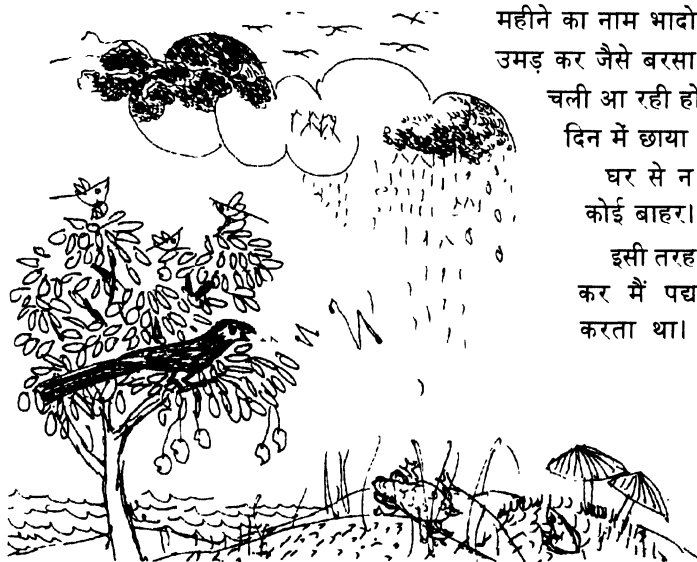 महीने का नाम भादो
उमड़ कर जैसे बरसा
चली आ रही हो
दिन में छाया
घर से न
कोई बाहर।
इसी तरह
कर मैं पद्य
करता था।